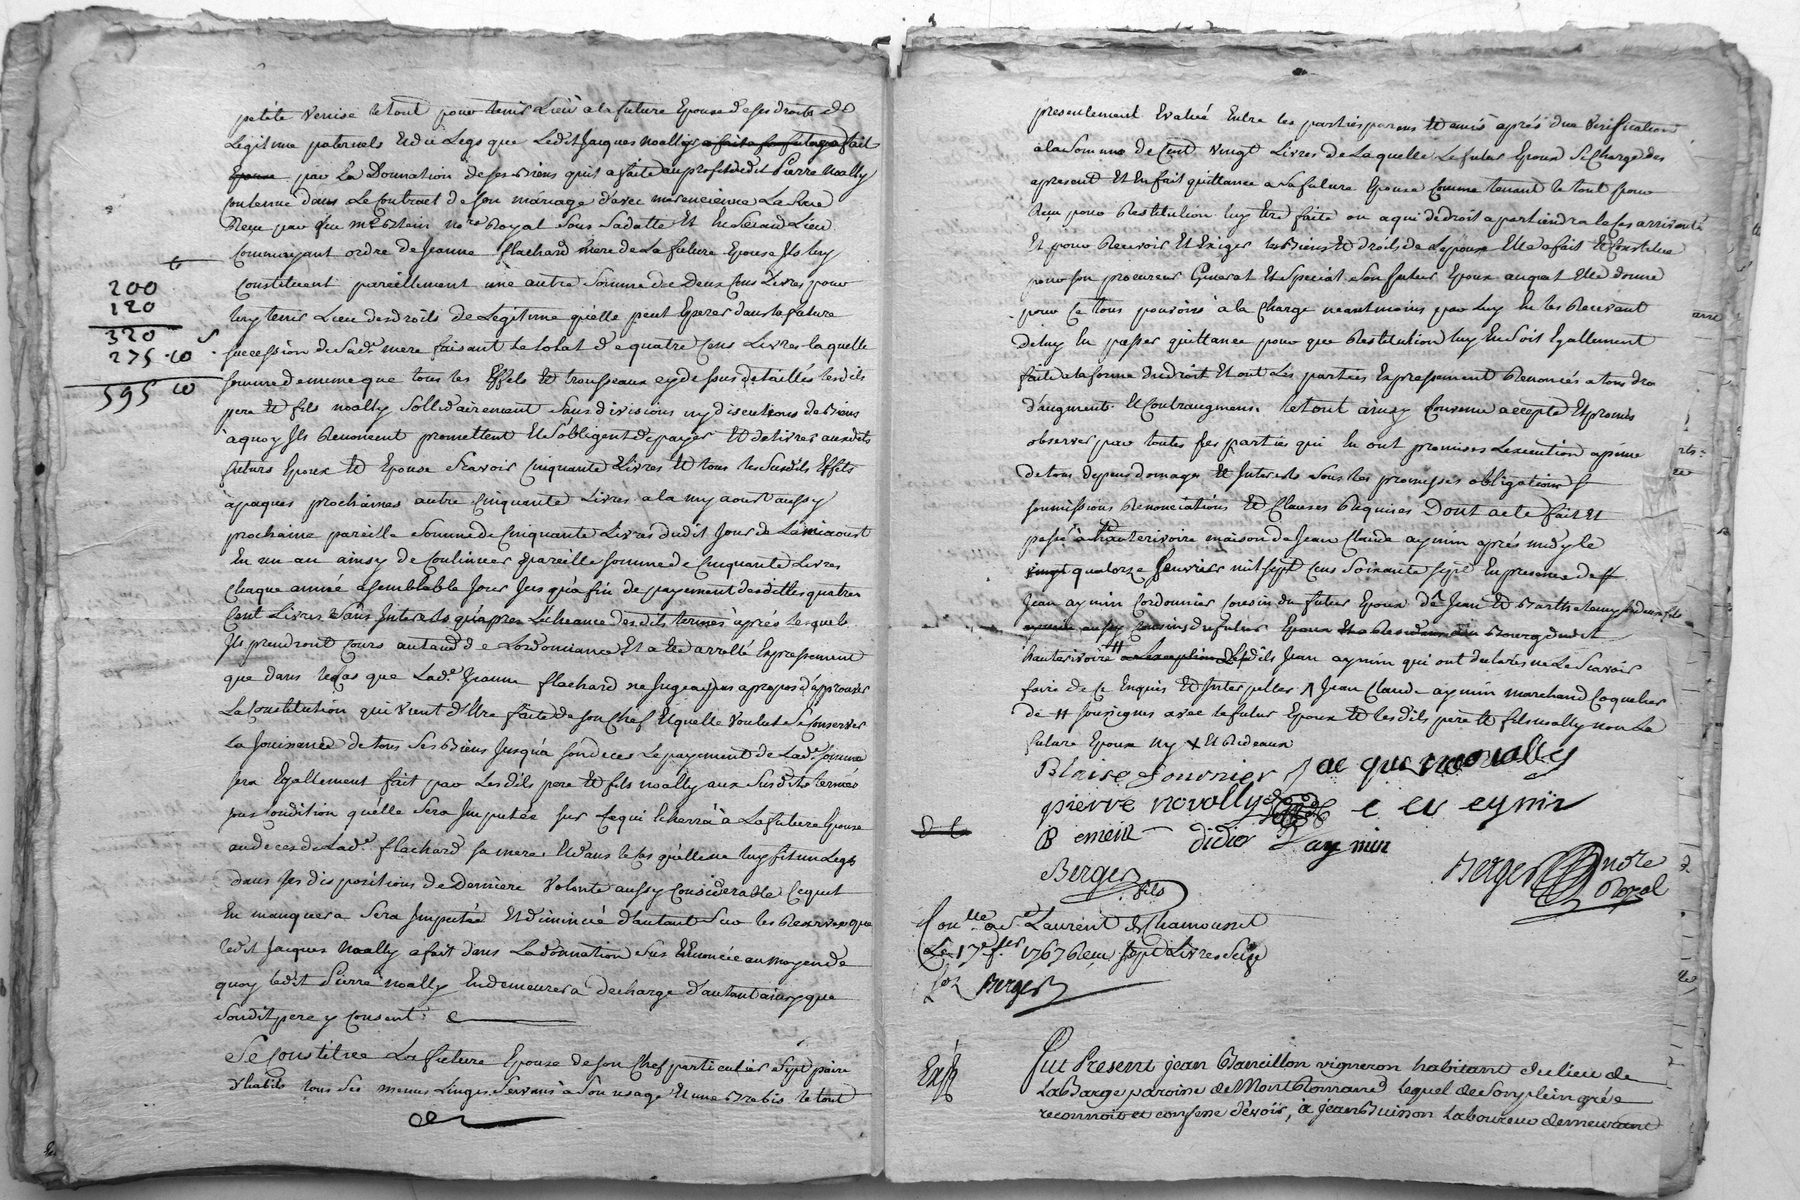 petite Venise le tout pour tenir Lieu a la future Epouse de ses droits de
Legitime paternels Et du Legs que Ledit Jacques noally a fait
par La Donnation de ses Biens quil a faite au profit dudit Pierre Noally
Contenue dans Le Contrat de son mariage d'avec
Reçu par Royal Sous Sa datte Et En Second Lieu
Comme ayant ordre de Jeanne flachard mere de La future Epouse Ils luy
Constituent pareillement une autre Somme de Deux Cens Livres pour
luy tenir Lieu des droits de Legitime quelle peut Esperer dans la future
200
120
320
275 . 10
595 10
succession de Sad. mere faisant le total de quatre Cens Livres laquelle
somme de meme que tous les Effets et trousseaux cy dessous detaillés lesdits
pere et fils noally Sollidairement Sans division ny discutions de Biens
a quoy Ils Renoncent promettent Et S'obligent de payer Et delivrer auxdits
futurs Epoux et Epouse Scavoir Cinquante Livres et tous les Susdits Effets
a paques prochaines autre Cinquante Livres a la my aoust aussy
prochaine pareille Somme de Cinquante Livres dudit Jour de La miaoust
En un an ainsy de Continuer pareille somme de Cinquante Livres
Chaque année a Semblable Jour Jusqu'a fin de payement desdittes quatre
Cent Livres Sans Interests qu'apres L'Echeance desdits termes après lesquels
Ils prendront Cours autaud de Lordonnance Et a Eté arrêté Expressement
que dans le Cas que Lad.e Jeanne flachard ne Jugea pas apropos d'approuver
La Constitution qui vient d'Etre faite de Son Chef Et quelle voulut Se Conserver
La Jouissance de tous Ses Biens Jusqu'a Son deces Le payement de Lad.e Somme
sera Egallement fait par Lesdits pere et fils noally aux Susdits termes
sous Condition quelle Sera Imputée Sur Ce qui Echerra à La future Epouse
au deces de Lad.e flachard sa mere. Et dans le Cas qu'elle ne luy fit un Legs
dans Ses dispositions de Derniere Volonté aussy Considerable Ce qui
En manquera Sera Imputé Et diminué d'autant Sur les Reserves que
ledit Jacques Noally a fait dans La donnation Sus Enoncée au moyen de
quoy ledit Pierre noally En demeurera decharge d'autant ainsy que
Sondit pere y Consent.
Se Constitue La future Epouse de Son Chef particulier Sept paire
d'habits tous Ses menus Linges Servans à Son usage Et une Brebis le tout
presentement Evalué Entre les parties parens et amis après due Verification
a la Somme de Cent vingt Livres de Laquelle Le futur Epoux Se Charge des
apresent Et En fait quittance a Sa future Epouse Comme tenant le tout pour
Reçu pour Restitution luy Etre faite ou a qui de droit apartiendra le Cas arrivant
Et pour Recevoir Et Exiger les Biens et droits de L'epouse Elle a fait Et Constitue
pour son procureur General Et Special Son futur Epoux auquel Elle donne
pour Ce tous pouvoirs à la Charge neantmoins par luy En les Recevant
de luy En passer quittance pour que Restitution luy En Soit Egallement
faite a la forme du droit Et ont Les parties Expressement Renoncés a tous dro
d'augment Et Contraugment. le tout ainsy Convenu accepté Et promis
observer par toutes les parties qui En ont promises L'execution a peine
de tous depens domages Et Interests Sous les promesses obligations
soumissions Renonciations Et Clauses Requises Dont acte fait Et
passé à hauterivoire maison de Jean Claude aymin après midy le
quatorze fevrier mil Sept Cens Soixante Sept En presence de
Jean aymin Cordonnier Cousin du futur Epoux de Jean et Barthelemy
aussy Cousins du futur Epoux Bourg dudit
hauterivoire Jean aymin qui ont declarés ne Le Scavoir
faire de Ce Enquis Et Interpellés Jean Claude aymin marchand Coquetier
de Soussignés avec le futur Epoux et lesdits pere et fils noally non La
future Epouse ny Et Rideaux
Blaise fournier Jacque novally
pierre novally eymin
didier aymin
Berger fils
Berger nore Royal
Con.lle a S.t Laurent de Chamousset
Le 17e fer 1767 Reçu Sept Livres Seize
Berger
Exp
Fut Present jean vigneron habitant du lieu de
La Barge paroisse de Mont Romand lequel de Son plein gré
reconnoit et confesse devoir, à jean Buisson laboureur demeurant